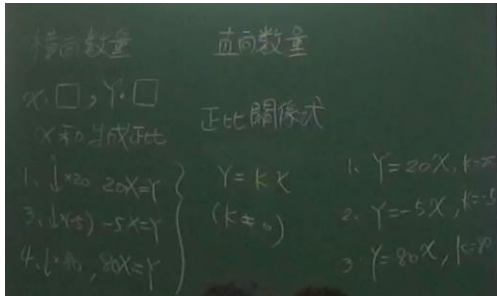 橫向數量
x:□,Y:□
X和Y成正比
1. ↓×20 20X=Y
3. ↓×(-5) -5X=Y
4. ↓×80, 80X=Y
直向數量
正比關係式
Y=KX
(K≠0)
1. Y=20X, K=20
2. Y=-5X, K=-5
3 Y=80X, K=80